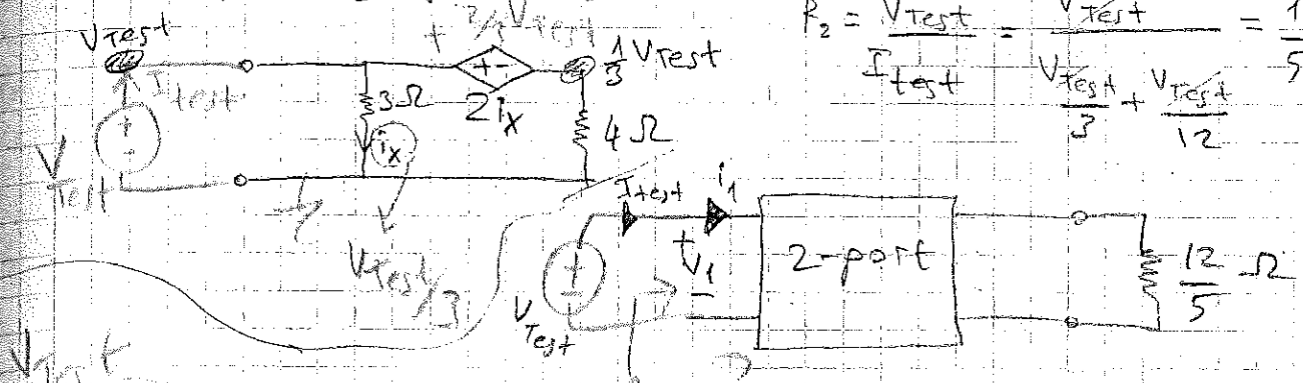 VTest
Itest
VTest
3Ω
ix
VTest/3
+ 2/3 VTest
+ -
2ix
1/3 VTest
4Ω
R2 = VTest / Itest = VTest / (VTest/3 + VTest/12) = 1
5
Itest
i1
+
V1
-
VTest
2-port
12/5 Ω
VTest